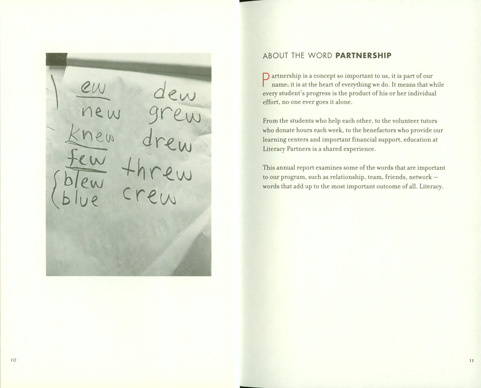 ew
new
knew
few
blew
blue
dew
grew
drew
threw
crew
10
ABOUT THE WORD PARTNERSHIP
Partnership is a concept so important to us, it is part of our
name; it is at the heart of everything we do. It means that while
every student's progress is the product of his or her individual
effort, no one ever goes it alone.
From the students who help each other, to the volunteer tutors
who donate hours each week, to the benefactors who provide our
learning centers and important financial support, education at
Literacy Partners is a shared experience.
This annual report examines some of the words that are important
to our program, such as relationship, team, friends, network –
words that add up to the most important outcome of all. Literacy.
11